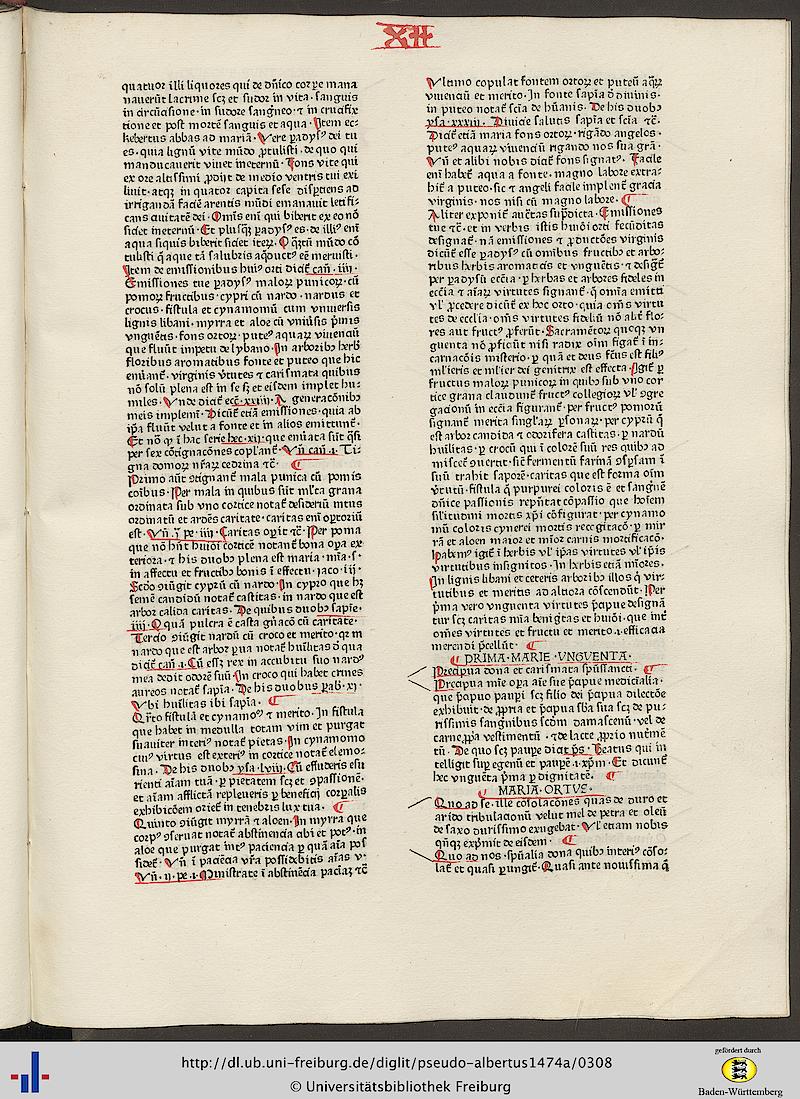 XII
quatuor illi liquores qui de dñico corꝑe mana
nauerūt lacrime scꝫ et sudor in vita · sanguis
in circūcisione · in sudore sanḡneo · ⁊ in crucifix
tione et post mortē sanguis et aqua · Itē ec-
kebertus abbas ad mariā · Vere ꝑadysꝰ dei tu
es · quia lignū vite mūdo ꝓtulisti · de quo qui
manducauerit viuet ineternū · Fons vite qui
ex ore altissimi ꝓdijt de medio ventris tui exi
liuit · atqꝫ in quatuor capita sese disꝑtiens ad
irrigandā faciē arentis mūdi emanauit letifi-
cans ciuitatē dei · Om̄is eni qui biberit ex eo nō
siciet ineternū ·
aqua siquis biberit siciet iterꝝ ·
tulisti
Item de emissionibus huiꝰ orti dicit̄ can̄ · iiii ·
Emissiones tue ꝑadysꝰ maloꝝ punicoꝝ · cū
pomoꝝ fructibus · cypri cū nardo · nardus et
crocus · fistula et cynamomū cum vniuersis
lignis libani · myrra et aloe cū vniūsis pmis
vnguētis · fons ortoꝝ · puteꝰ aquaꝝ viuenciū
que fluūt impetu de lybano · In arboribꝫ herbis
floribus aromatibus fonte et puteo que hic
virginis v̄tutes ⁊ carismata quibus
nō solū plena est in se sꝫ et eisdem implet hu-
miles · Vnde dicit̄ ecc̄ · xxiiii · A generacōnibꝫ
meis implemī · Dicūt̄ etiā emissiones · quia ab
ip̄a fluūt velut a fonte et in alios emittunt̄ ·
per sex cōiugacōnes coplant̄ · Vn̄ can̄ · i · Ti-
gna domoꝝ nr̄aꝝ cedrina ⁊c̄ ·
Primo aūt ꝯiugant̄ mala punica cū pomis
coibus · Per mala in quibus sūt ml̄ta grana
ordinata sub vno cortice notat̄ desideriū intus
ordinatū et ardēs caritate · caritas eni oꝑtoriū
est · Vn̄ · i · pe · iiii · Caritas oꝑit ⁊c̄ · Per poma
que nō hn̄t huiōi corticē notant̄ bona oꝑa ex
teriora · ⁊ his duobꝫ plena est maria ·
in affectu et fructibꝫ bonis ī effectu · iaco · iij ·
Scdō ꝯiūgit cyprū cū nardo · In cypro que hꝫ
semē candidū notat̄ castitas · in nardo que est
arbor calida caritas · De quibus duobꝫ sapīe ·
iiii · O quā pulcra ē casta gn̄acō cū caritate ·
Tercio ꝯiūgit nardū cū croco et merito · qꝛ in
nardo que est arbor ꝑua notat̄ hūilitas ō qua
dicit̄ can̄ · i · Cū essꝫ rex in accubitu suo nardꝰ
mea dedit odorē suū · In croco qui habet crines
aureos notat̄ sapīa · De his duobus ꝑab · xj ·
Vbi hūilitas ibi sapīa ·
Qr̄to fistulā et cynamoꝰ ⁊ merito · In fistula
que habet in medulla totam vim et purgat
suauiter interiꝰ notat̄ pietas · In cynamomo
cuiꝰ virtus est exteriꝰ in cortice notat̄ elemo-
sina · De his duobꝫ ysa · lviij · Cū effuderis esu
rienti aīam tuā · ꝑ pietatem scꝫ et ꝯpassionē ·
et aīam afflictā repleueris ꝑ beneficij corꝑalis
exhibicōem orieē in tenebris lux tua ·
Quinto ꝯiūgit myrrā ⁊ aloen · In myrra que
corpꝰ ꝯseruat notat̄ abstinencia cibi et potꝰ · in
aloe que purgat intꝰ paciencia ꝑ quā aīa pos
sidet̄ · Vn̄ ī paciēcia vr̄a possidebitis aīas v̄ ·
Vn̄ · ij · pe · i · Ministrate ī abstinēcia paciaꝫ ⁊c̄
Vltimo copulat fontem ortoꝝ et puteū aqꝝ
viuenciū et merito · In fonte sapīa ō diuinis ·
in puteo notat̄ scīa de hūanis · De his duobꝫ
ysa · xxxiii · Diuicie salutis sapīa et scīa ⁊c̄ ·
Dicit̄ etiā maria fons ortoꝝ · rigādo angelos ·
puteꝰ aquaꝝ viuenciū rigando nos sua grā ·
Vn̄ et alibi nobis dicit̄ fons signatꝰ · Facile
eni habet̄ aqua a fonte · magno labore extra-
hit̄ a puteo · sic ⁊ angeli facile implent̄ gracia
virginis · nos nisi cū magno labore ·
Aliter exponit̄ auctas supdicta · Emissiones
tue ⁊c̄ · et in verbis istis huiōi fecūditas
designat̄ · nā emissiones ⁊ ꝓductōes virginis
dicūt̄ esse ꝑadysus cū omībus fructibꝫ et arbo-
ribus herbis aromaticis et vnguētis · ⁊ desigt̄
per ꝑadysū ecc̄ia · ꝑ herbas et arbores fideles in
ecc̄ia ⁊ aīaꝝ virtutes signant̄ · q̄ omīa emitti
vl̄ ꝓcedere dicūt̄ ex hoc orto · quia om̄s virtu
tes de ecclīa · om̄s virtutes fideliū nō abt̄ flo-
res aut fructꝰ ꝓferūt · Sacramētoꝝ quoqꝫ vn
guenta nō ꝓficiūt nisi radix oīm figat̄ ī in-
carnacōis misterio · ꝑ quā et deus fc̄us est filiꝰ
ml̄ieris et ml̄ier dei genitrix est effecta · Igit̄ ꝑ
fructus maloꝝ punicoꝝ in quibꝫ sub vno cor
tice grana claudunt̄ fructꝰ collegioꝝ vl̄ ꝯgre
gacionū in ecc̄ia figurant̄ · per fructꝰ pomorū
signant̄ merita singl̄aꝝ ꝑsonaꝝ · per cyprū q̄
est arbor candida ⁊ odorifera castitas · ꝑ nardū
hūilitas · ꝑ crocū qui ī colorē suū res quibꝫ ad
miscet̄ ꝯuertit · sic̄ fermentū farinā ꝯsꝑsam ī
suū trahit saporē · caritas que est forma oīm
v̄tutū · fistula q̄ purpurei coloris ē et sangnē
dn̄ice passionis repn̄tat ꝯpassio que hoīem
sil̄itudini mortis xp̄i ꝯfigurat · per cynamo
mū coloris cynerei mortis recogitacō · ꝑ mir
rā et aloen maior et mīor carnis mortificacō ·
Habemꝰ igit̄ ī herbis vl̄ ip̄as virtutes vl̄ ip̄is
virtutibus insignitos · In herbis etiā mīores ·
In lignis libani et ceteris arboribꝫ illos q̄ vir-
tutibus et meritis ad altiora cōscendūt · Per
pma vero vnguenta virtutes p̄cipue designā
tur scꝫ caritas mīa benigītas et huiōi · que int̄
om̄es virtutes et fructu et merito · ⁊ efficacia
merendi p̄cellūt ·
PRIMA · MARIE · VNGVENTA ·
Precipua dona et carismata sp̄ussancti ·
Precipua mīe oꝑa aīe sue p̄cipue medicīalia ·
que p̄cipuo paupi scꝫ filio dei p̄cipua dilectōe
exhibuit · de ꝓpria et p̄cipua sba sua scꝫ de pu-
rissimis sanḡnibus scdm damascenū · vel de
carne ꝓpa vestimentū · ⁊ de lacte ꝓprio nut̄mē
tū · De quo scꝫ paupe dicit ps̄ · Beatus qui in
telligit suꝑ egenū et paupē · i · xp̄m · Et dicunt̄
hec vnguēta pma ꝑ dignitatē ·
MARIA · ORTVS ·
Quo ad se · ille cōsolacōnes quas de duro et
arido tribulacionū velut mel de petra et oleū
de saxo durissimo exugebat · Vl̄ etiam nobis
qn̄qꝫ expmit de eisdem ·
Quo ad nos · spūalia dona quibꝫ interiꝰ cōso-
lat̄ et quasi ꝑungit̄ · Quasi ante nouissima q̄
http://dl.ub.uni-freiburg.de/diglit/pseudo-albertus1474a/0308
© Universitätsbibliothek Freiburg
gefördert durch
Baden-Württemberg